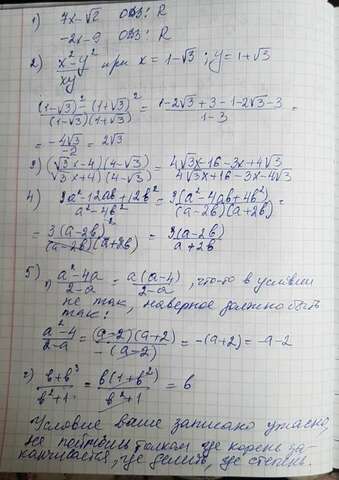 1) 7x-√2 ОДЗ: R
-2x-9 ОДЗ: R
2) x²-y²/xy при x = 1-√3 ; y = 1+√3
(1-√3)²-(1+√3)²/(1-√3)(1+√3) = 1-2√3+3-1-2√3-3/1-3 =
= -4√3/-2 = 2√3
3) (√3x-4)(4-√3)/(√3x+4)(4-√3) = 4√3x-16-3x+4√3/4√3x+16-3x-4√3
4) 3a²-12ab+12b²/a²-4b² = 3(a²-4ab+4b²)/(a-2b)(a+2b) =
= 3(a-2b)²/(a-2b)(a+2b) = 3(a-2b)/a+2b
5) 1) a²-4a/2-a = a(a-4)/2-a, что-то в условии
не так, наверное должно быть
так:
a²-4/2-a = (a-2)(a+2)/-(a-2) = -(a+2) = -a-2
2) b+b³/b²+1 = b(1+b²)/b²+1 = b
Условие ваше записано ужасно,
не поймёшь толком где корень за-
канчивается, где делить, где степень.